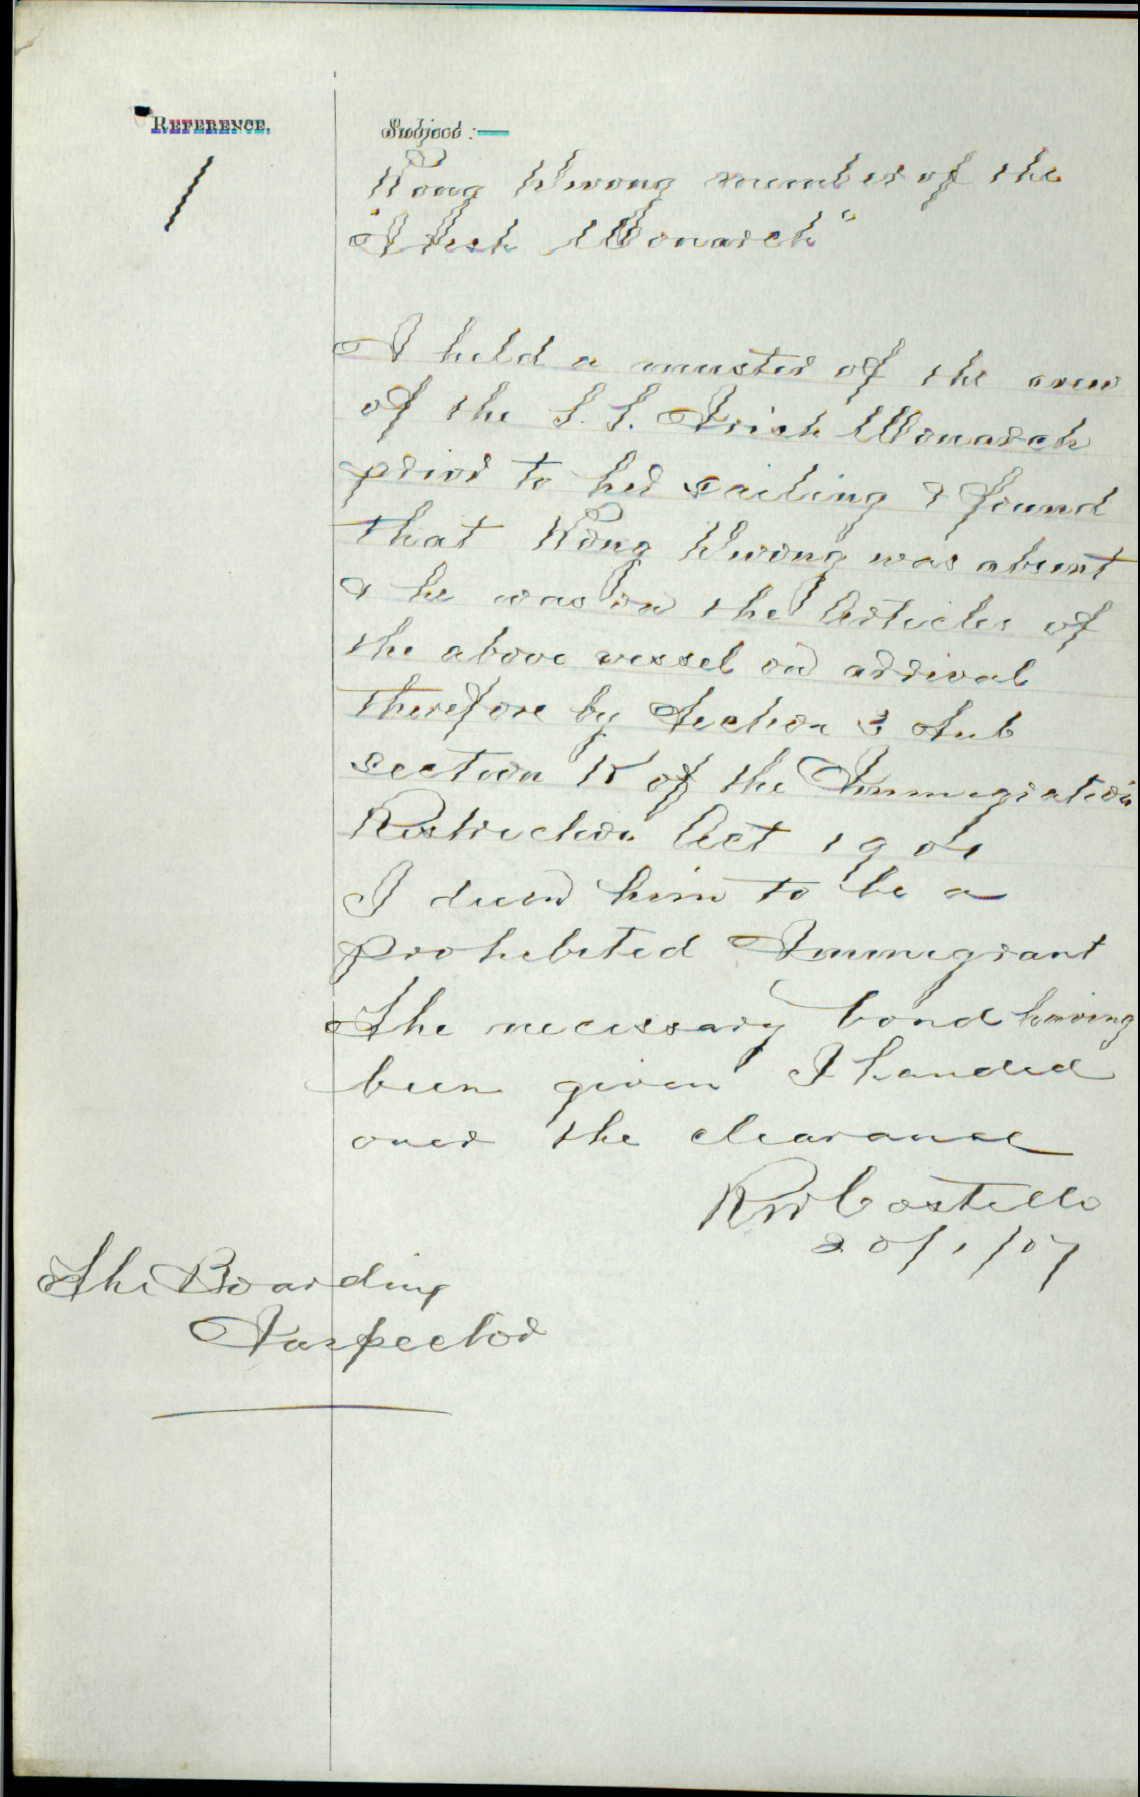 REFERENCE.
Subject :—
1
Kong Kwong member of the
"Irish Monarch"
I held a muster of the crew
of the S. S. Irish Monarch
prior to her sailing & found
that Kong Kwong was absent
& he was on the Articles of
the above vessel on arrival
therefore by Section 3 Sub
section K of the Immigration
Restriction Act 1901
I deem him to be a
prohibited Immigrant
The necessary bond having
been given I handed
over the clearance
RW Costello
20/1/07
The Boarding
Inspector